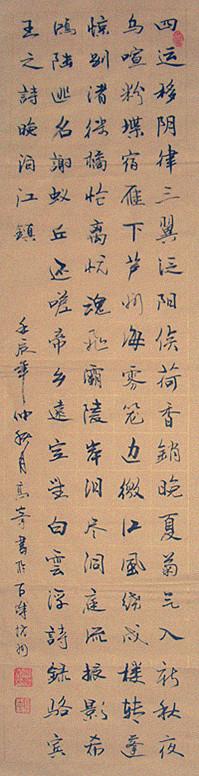 四运移阴律三翼泛阳侯荷香銷晚夏菊气入新秋夜
乌喧粉堞宿雁下芦州海雾笼边徼江风绕戍楼转蓬
惊别渚徙橘怆离忧魂飞灞陵岸泪尽洞庭流振影希
鸿陆逃名謝蚁丘还嗟帝乡遠空望白雲浮詩録骆宾
王之詩晚泊江鎮
壬辰年仲秋月高奇書於百